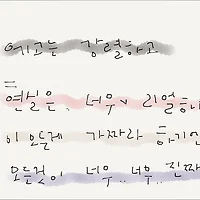 예고는 강렬하고
현실은, 너무 리얼하
이 모든게 가짜라 하기엔
모든것이 너무.. 너무.. 진짜